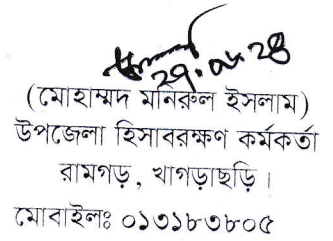 ২৭.০৮.২৪
(মোহাম্মদ মনিরুল ইসলাম)
উপজেলা হিসাবরক্ষণ কর্মকর্তা
রামগড়, খাগড়াছড়ি।
মোবাইলঃ ০১৩১৮৩৮০৫